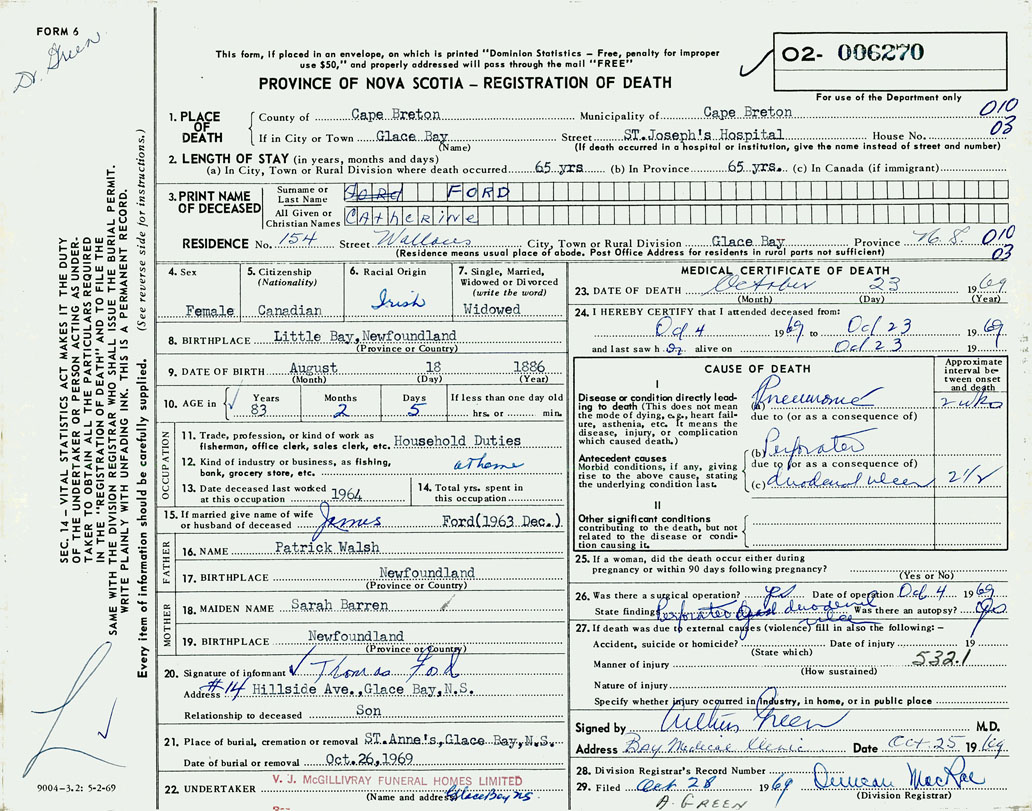 FORM 6
Dr. Green
This form, if placed in an envelope, on which is printed "Dominion Statistics – Free, penalty for improper
use $50," and properly addressed will pass through the mail "FREE"
PROVINCE OF NOVA SCOTIA – REGISTRATION OF DEATH
02- 006270
For use of the Department only
010
03
1. PLACE OF DEATH
County of Cape Breton Municipality of Cape Breton
If in City or Town Glace Bay Street ST.Joseph's Hospital House No.
(Name) (If death occurred in a hospital or institution, give the name instead of street and number)
2. LENGTH OF STAY (in years, months and days)
(a) In City, Town or Rural Division where death occurred 65 yrs (b) In Province 65 yrs. (c) In Canada (if immigrant)
3. PRINT NAME OF DECEASED
Surname or Last Name Ford FORD
All Given or Christian Names CAtherine
RESIDENCE No. 154 Street Wallace City, Town or Rural Division Glace Bay Province N.S. 010
(Residence means usual place of abode. Post Office Address for residents in rural parts not sufficient) 03
4. Sex
Female
5. Citizenship (Nationality)
Canadian
6. Racial Origin
Irish
7. Single, Married, Widowed or Divorced (write the word)
Widowed
8. BIRTHPLACE Little Bay,Newfoundland
(Province or Country)
9. DATE OF BIRTH August 18 1886
(Month) (Day) (Year)
10. AGE in Years Months Days If less than one day old
83 2 5 hrs. or min.
OCCUPATION
11. Trade, profession, or kind of work as
fisherman, office clerk, sales clerk, etc. Household Duties
12. Kind of industry or business, as fishing,
bank, grocery store, etc. at home
13. Date deceased last worked
at this occupation 1964
14. Total yrs. spent in
this occupation
15. If married give name of wife
or husband of deceased James Ford(1963 Dec.)
FATHER
16. NAME Patrick Walsh
17. BIRTHPLACE Newfoundland
(Province or Country)
MOTHER
18. MAIDEN NAME Sarah Barren
19. BIRTHPLACE Newfoundland
(Province or Country)
20. Signature of informant Thomas Ford
Address #14 Hillside Ave.,Glace Bay,N.S.
Relationship to deceased Son
21. Place of burial, cremation or removal ST.Anne's,Glace Bay,N.S.
Date of burial or removal Oct.26,1969
22. UNDERTAKER V. J. McGILLIVRAY FUNERAL HOMES LIMITED
(Name and address) Glace Bay NS
MEDICAL CERTIFICATE OF DEATH
23. DATE OF DEATH October 23 1969
(Month) (Day) (Year)
24. I HEREBY CERTIFY that I attended deceased from:
Oct 4 1969 to Oct 23 1969
and last saw h er alive on Oct 23 19
CAUSE OF DEATH
Approximate interval between onset and death
I
Disease or condition directly leading
to death (This does not mean
the mode of dying, e.g., heart failure,
asthenia, etc. It means the
disease, injury, or complication
which caused death.)
(a) Pneumonia 2 wks
due to (or as a consequence of)
Antecedent causes
Morbid conditions, if any, giving
rise to the above cause, stating
the underlying condition last.
(b) Perforated
due to (or as a consequence of)
(c) duodenal ulcer
II
Other significant conditions
contributing to the death, but not
related to the disease or condition
causing it.
25. If a woman, did the death occur either during
pregnancy or within 90 days following pregnancy?
(Yes or No)
26. Was there a surgical operation? yes Date of operation Oct 4 1969
State findings Perforated duodenal ulcer Was there an autopsy?
27. If death was due to external causes (violence) fill in also the following: –
Accident, suicide or homicide? Date of injury 19
(State which)
Manner of injury 532.1
(How sustained)
Nature of injury
Specify whether injury occurred in industry, in home, or in public place
Signed by Arthur Green M.D.
Address Bay Medical Clinic Date Oct 25 1969
28. Division Registrar's Record Number
29. Filed Oct 28 1969 Duncan MacRae
(Division Registrar)
A. GREEN
SEC. 14 – VITAL STATISTICS ACT MAKES IT THE DUTY
OF THE UNDERTAKER OR PERSON ACTING AS UNDERTAKER
TO OBTAIN ALL THE PARTICULARS REQUIRED
IN THE "REGISTRATION OF DEATH" AND TO FILE THE
SAME WITH THE DIVISION REGISTRAR WHO SHALL ISSUE THE BURIAL PERMIT.
WRITE PLAINLY WITH UNFADING INK. THIS IS A PERMANENT RECORD.
Every item of information should be carefully supplied. (See reverse side for instructions.)
9004-3.2: 5-2-69